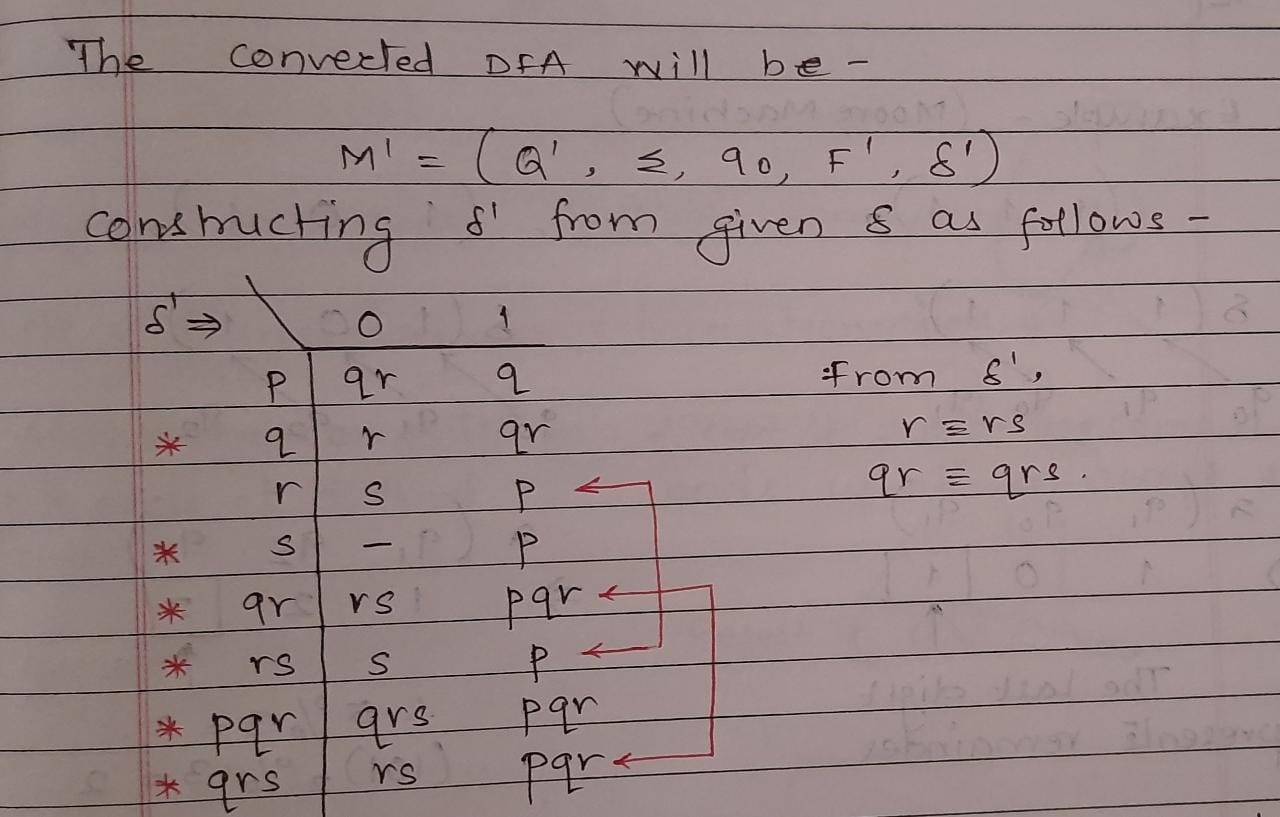 The converted DFA will be -
M' = (Q', Σ, q0, F', δ')
constructing δ' from given δ as follows -
δ' ⇒ \ 0 1
p | qr q
* q | r qr
r | s p
* s | - p
* qr | rs pqr
* rs | s p
* pqr | qrs pqr
* qrs | rs pqr
From δ',
r ≡ rs
qr ≡ qrs.